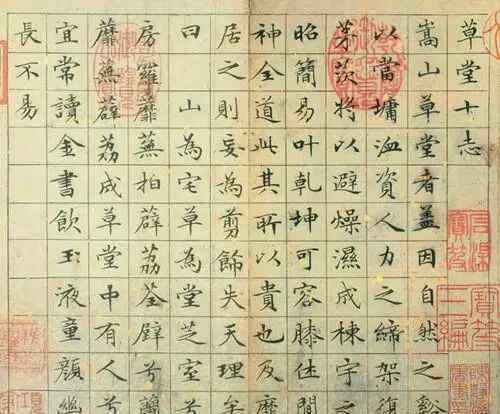 草堂十志
嵩山草堂者盖因自然之谿
以當墉洫資人力之締架復
茅茨将以避燥濕成棟宇之
昭簡易叶乾坤可容膝休閒
神全道此其所以貴也及靡
居之則妄為剪飾失天理矣
曰 山為宅草為堂芝室兮
房羅蘼蕪拍薜荔荃壁兮蘭
蘼蕪薜荔成草堂中有人兮
宜常讀金書飲玉液童顏幽
長不易